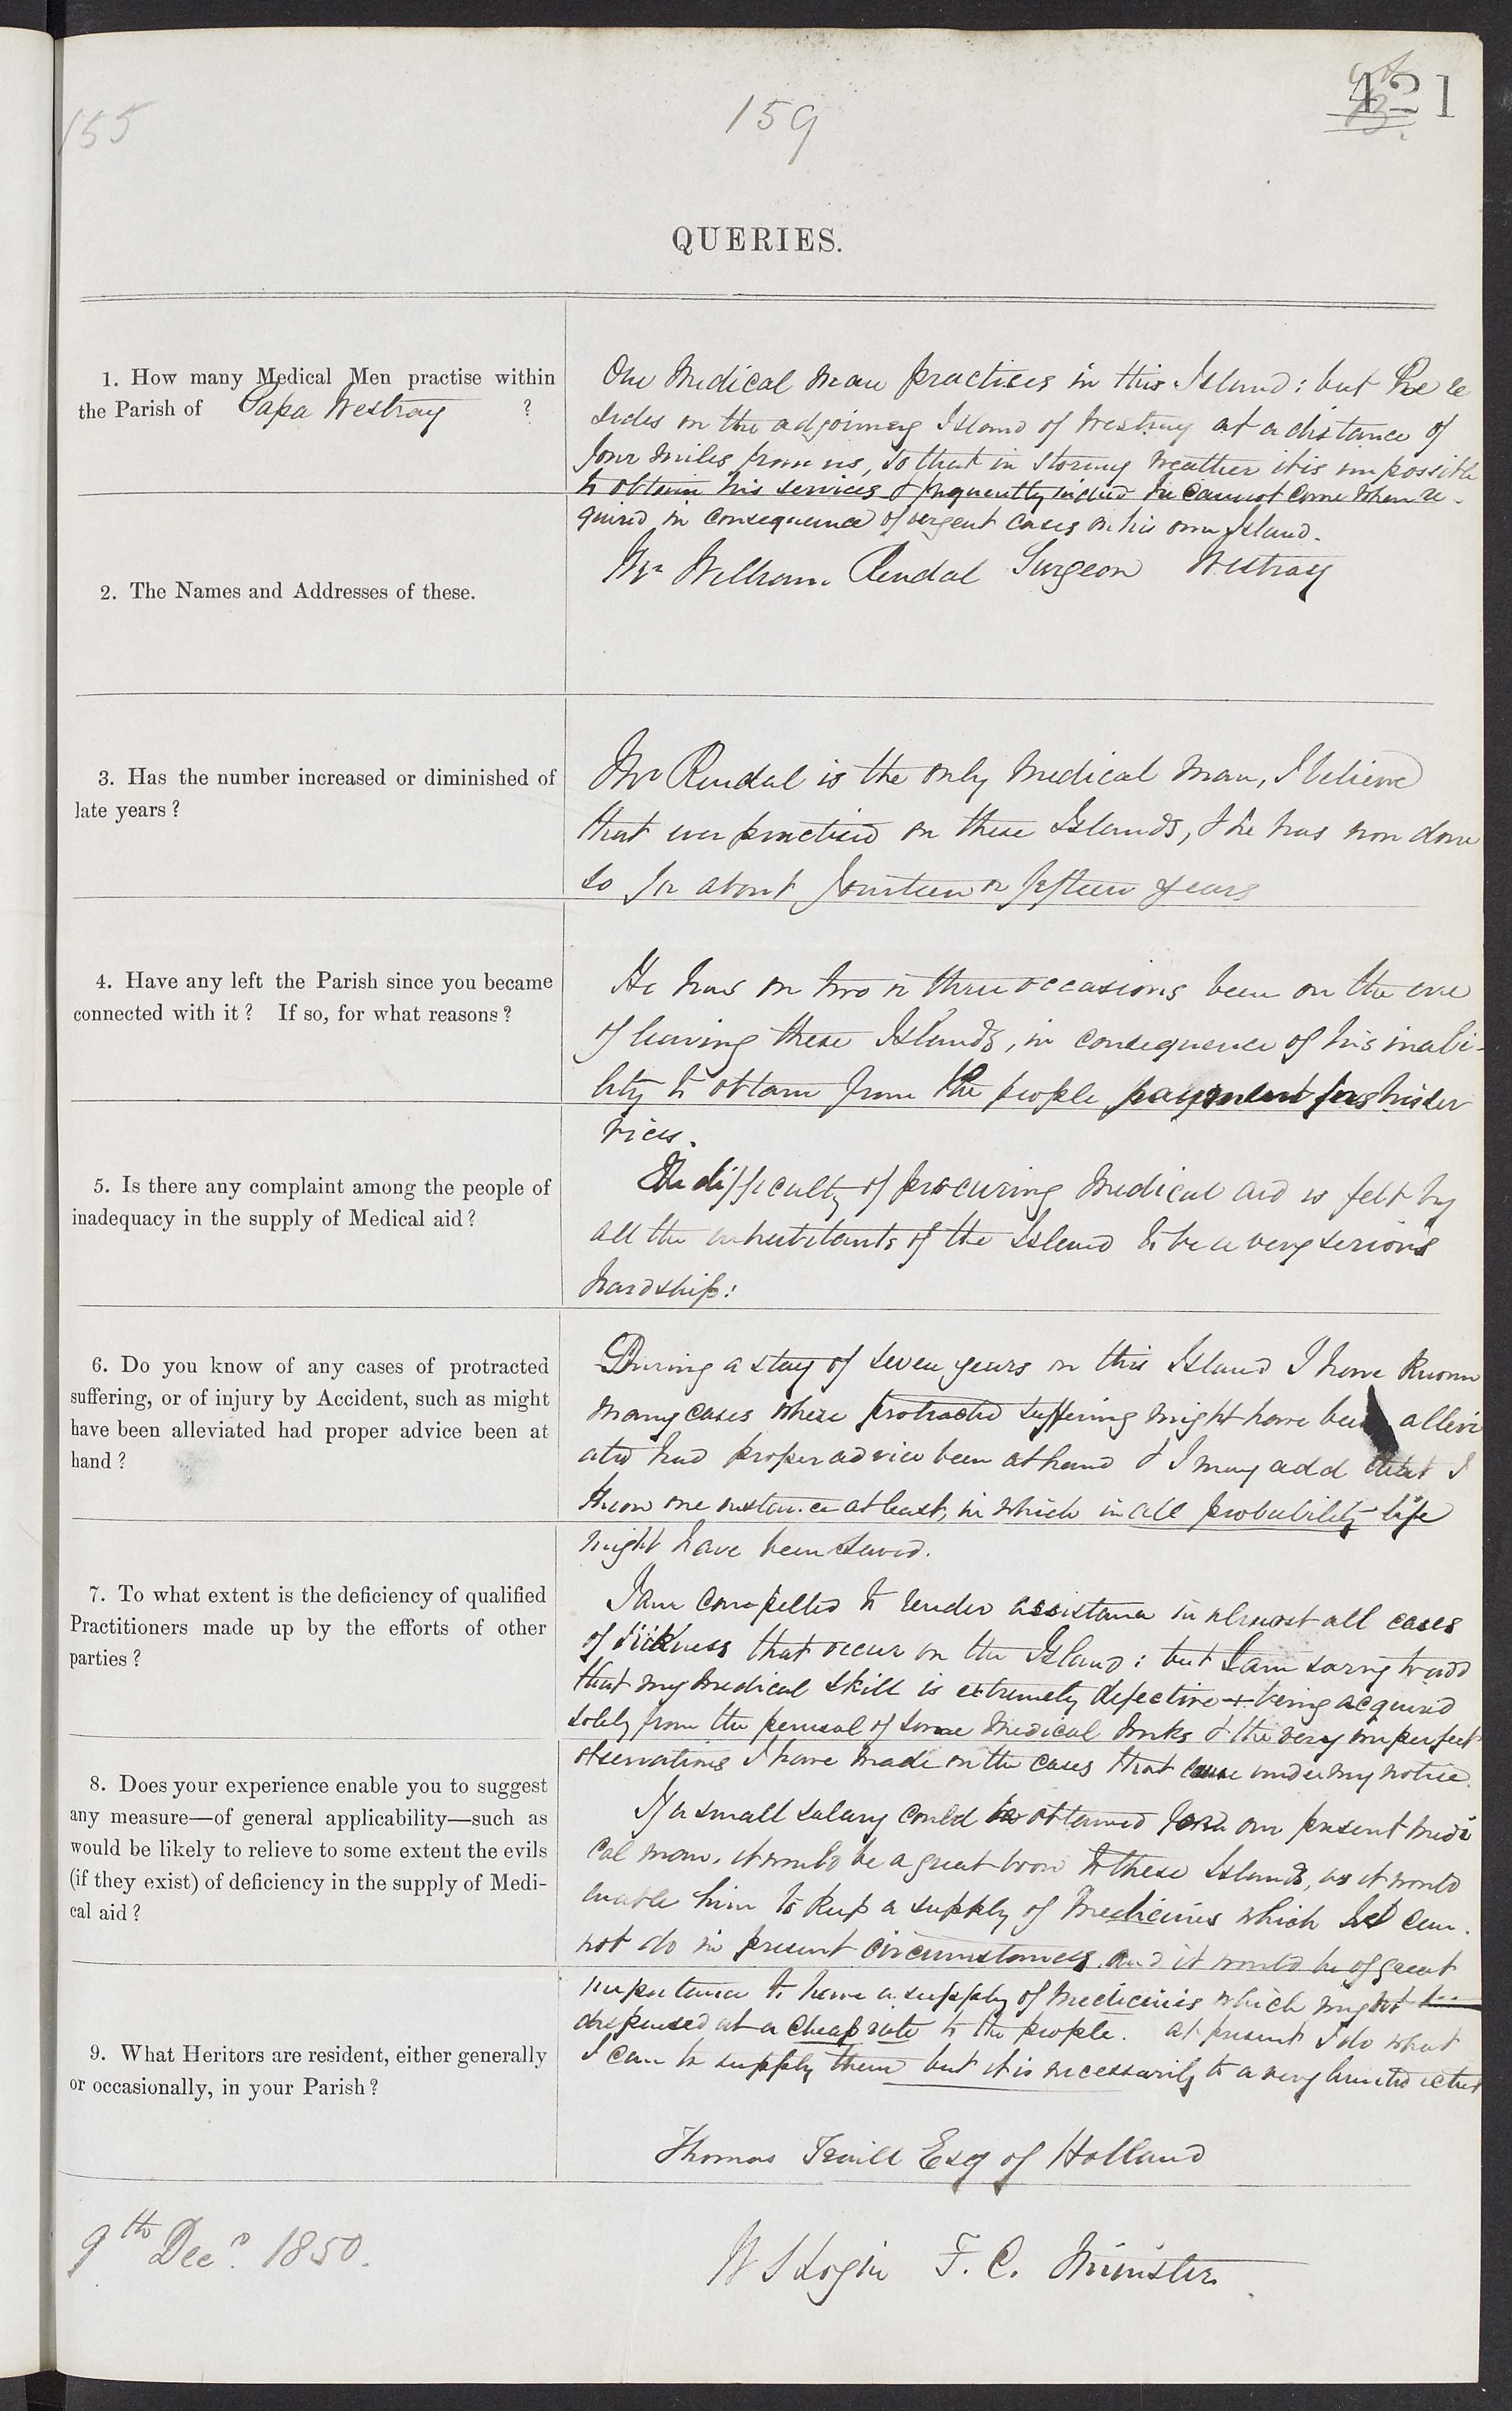 155
159
421
QUERIES.
1. How many Medical Men practise within
the Parish of Papa Westray ?
One Medical Man practises in this Island : but he re
sides on the adjoining Island of Westray at a distance of
four miles from us, so that in stormy weather it is impossible
to obtain his services & frequently indeed he cannot come when re-
quired in consequence of urgent cases on his own Island.
2. The Names and Addresses of these.
Mr William Rendal Surgeon Westray
3. Has the number increased or diminished of
late years ?
Mr Rendal is the only Medical Man, I believe
that ever practised on these Islands, & he has now done
so for about fourteen or fifteen years
4. Have any left the Parish since you became
connected with it ? If so, for what reasons ?
He has on two or three occasions been on the eve
of leaving these Islands, in consequence of his inabi-
lity to obtain from the people payment for his ser
vices.
5. Is there any complaint among the people of
inadequacy in the supply of Medical aid ?
The difficulty of procuring Medical aid is felt by
all the inhabitants of the Island to be a very serious
hardship :
6. Do you know of any cases of protracted
suffering, or of injury by Accident, such as might
have been alleviated had proper advice been at
hand ?
During a stay of seven years on this Island I have known
many cases where protracted suffering might have been allevi
ated had proper advice been at hand & I may add that I
know one instance at least, in which in all probability life
might have been saved.
7. To what extent is the deficiency of qualified
Practitioners made up by the efforts of other
parties ?
I am compelled to render assistance in almost all cases
of sickness that occur on the Island : but I am sorry to add
that my medical skill is extremely defective being acquired
solely from the perusal of some Medical works & the very imperfect
observations I have made on the cases that came under my notice.
8. Does your experience enable you to suggest
any measure—of general applicability—such as
would be likely to relieve to some extent the evils
(if they exist) of deficiency in the supply of Medi-
cal aid ?
If a small salary could be obtained for our present medi
cal man, it would be a great boon to these Islands, as it would
enable him to keep a supply of Medicines which he can-
not do in present circumstances. And it would be of great
importance to have a supply of Medicines which might be
dispensed at a cheap rate to the people. At present I do what
I can to supply them but it is necessarily to a very limited extent
9. What Heritors are resident, either generally
or occasionally, in your Parish ?
Thomas Traill Esq of Holland
9th Decr. 1850.
W S Login F. C. Minister